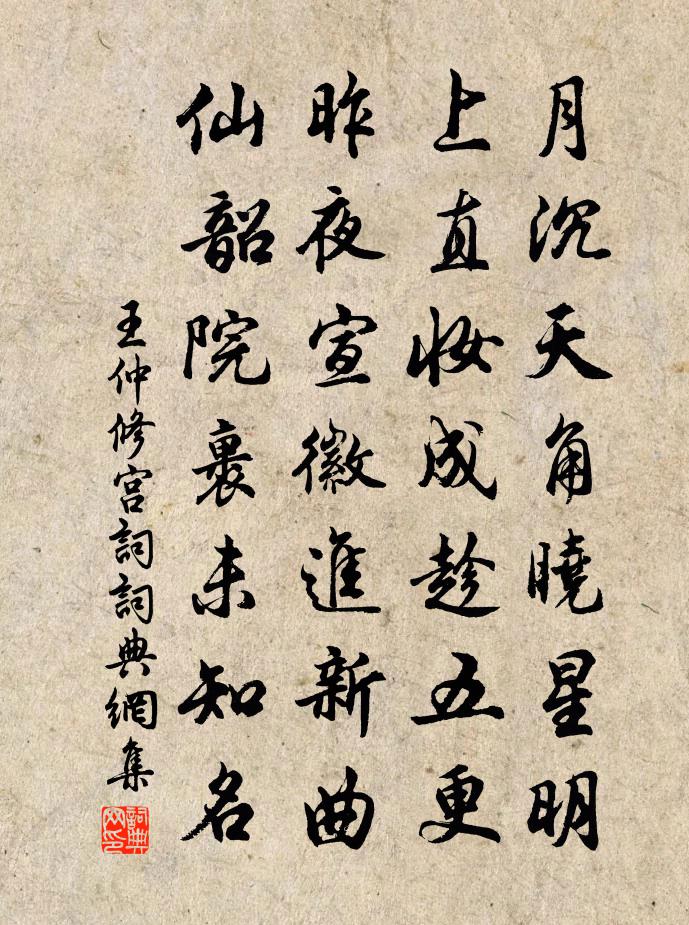 月沉天角曉星明
上直妝成趁五更
昨夜宣徽進新曲
仙韶院裏未知名
王仲修宮詞詞典網集
詞典网印